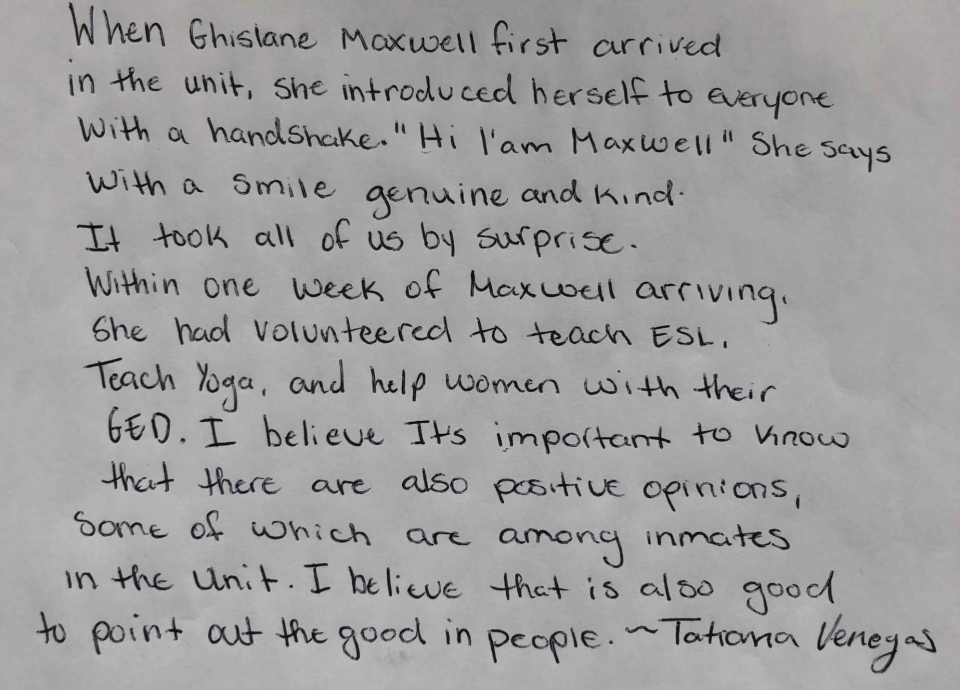 When Ghislane Maxwell first arrived
in the unit, she introduced herself to everyone
With a handshake. "Hi I'am Maxwell" She says
With a smile genuine and kind.
It took all of us by surprise.
Within one week of Maxwell arriving,
She had volunteered to teach ESL,
Teach Yoga, and help women with their
GED. I believe It's important to know
that there are also positive opinions,
Some of which are among inmates
in the unit. I believe that is also good
to point out the good in people. ~ Tatiana Venegas